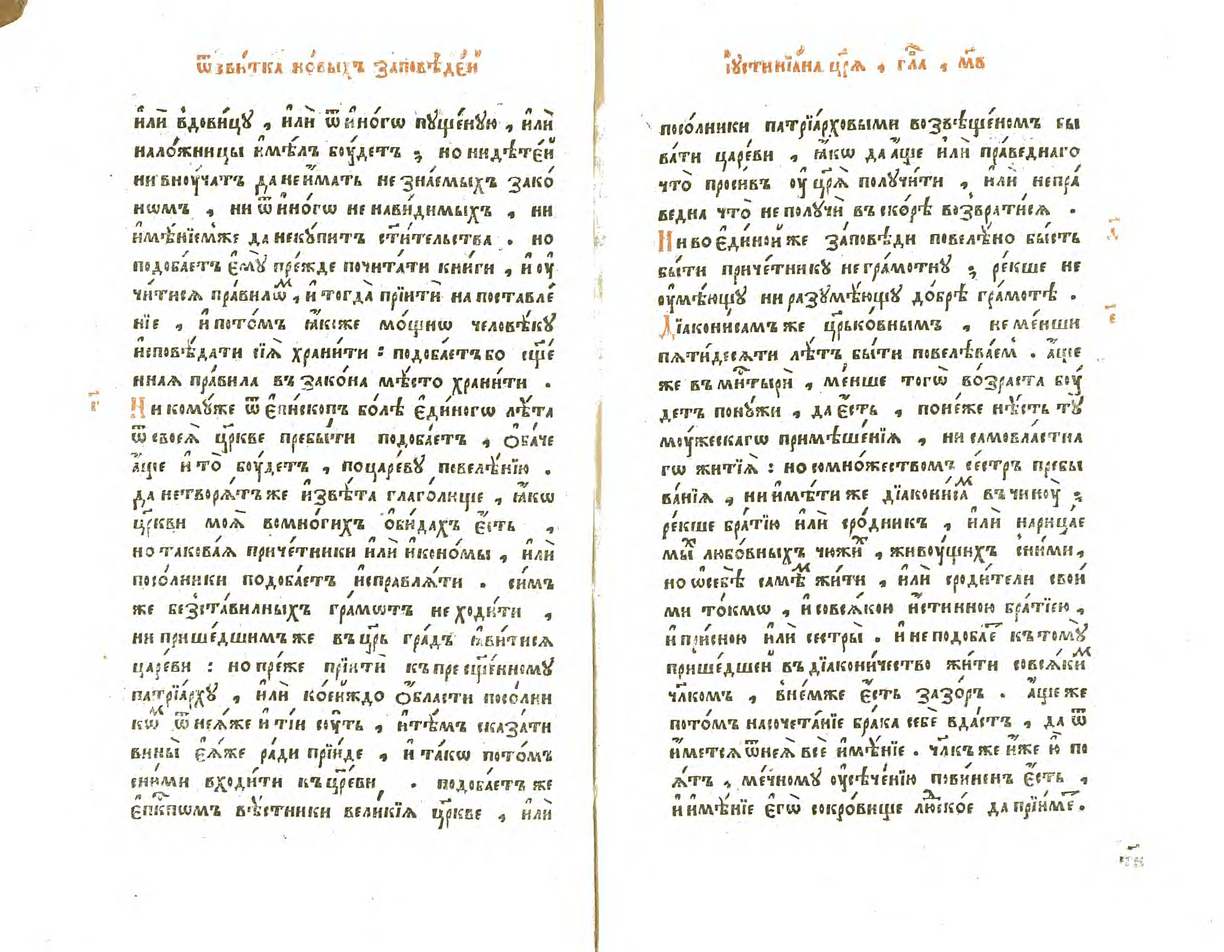 ѿзви́тка но́выхъ за́повѣде́й
и҆лѝ вдови́цу , и҆лѝ ѿи҆но́гѡ пуще́ную , и҆лѝ
нало́жницы и҆мѣ́лъ бꙋ́детъ ; но нидѣте́й
нивнꙋ́чатъ да не и҆́мать не зна́емыхъ зако́
нѡмъ , ни ѿи҆но́гѡ не нави́димыхъ , ни
и҆мѣ́нїемже да некꙋ́питъ ст҃и́тельства . но
подоба́етъ є҆мꙋ̀ пре́жде почита́ти кни́ги , и҆ ᲂу҆
чи́тисѧ пра́вилѡⷨ , и҆ тогда̀ прїитѝ на поставле́
нїе , и҆ пото́мъ ꙗ҆́коже мо́щнѡ человѣ́кꙋ
и҆сповѣ́дати сїѧ̀ храни́ти : подоба́етъ бо сщ҃е́
ннаѧ пра́вила въ зако́на мѣ́сто храни́ти .
Ни комꙋ́же ѿ є҆пи́скопъ бо́лѣ є҆ди́ногѡ лѣ́та
ѿ своеѧ̀ цр҃кве пребы́ти подоба́етъ , ѻ҆ба́че
а҆́ще и҆ то̀ бꙋ́детъ , поца́реву повелѣ́нїю .
да нетворѧ́тъ же и҆звѣ́та глаго́люще , ꙗ҆́кѡ
цр҃кви моѧ̀ вомно́гихъ ѻ҆би́дахъ є҆́сть ,
но такова́ѧ приче́тники и҆лѝ и҆коно́мы , и҆лѝ
посо́лники подоба́етъ и҆справлѧ́ти . си́мъ
же безста́вилныхъ гра́мѡтъ не ходи́ти ,
ни прише́дшимъ же въ цр҃ь гра́дъ ꙗ҆ви́тисѧ
царе́ви : но пре́же прїитѝ къ пресщ҃е́нномꙋ
патрїа́рхꙋ , и҆лѝ ко́еѧждо ѻ҆́бласти посо́лни
кѡⷨ ѿ неѧ́же и҆ ті́и сꙋ́ть , и҆ тѣ́мъ сказа́ти
вины̀ є҆ѧ́же ра́ди прїи́де , и҆ та́кѡ пото́мъ
сни́ми входи́ти къ цр҃е́ви , . подоба́етъ же
є҆пкⷭ҇пѡмъ вѣ́стники вели́кїѧ цр҃кве , и҆лѝ
г҃
і҆ꙋстинїа́на цр҃ѧ̀ , гла҃ , м҃в
посо́лники патрїа́рховыми возвѣще́номъ бы
ва́ти царе́ви , ꙗ҆́кѡ да а҆́ще и҆лѝ пра́веднаго
что̀ проси́въ ᲂу҆ цр҃ѧ̀ получи́ти , и҆лѝ непра́
ведна что̀ не получѝ въ ско́рѣ возврати́сѧ .
Ни во є҆ди́ной же за́повѣди повелѣ́но бы́сть
бы́ти приче́тникꙋ не гра́мотнꙋ ; ре́кше не
ᲂу҆мѣ́ющꙋ ни разꙋмѣ́ющꙋ до́брѣ гра́мотѣ .
Дїа́конисамъ же цр҃ько́внымъ , не ме́нши
пѧти́десѧти лѣ́тъ бы́ти повелѣва́еⷨ . а҆́ще
же въ мнⷭ҇тырѝ , ме́нше тогѡ̀ во́зраста бꙋ́
детъ понꙋ́жи , да є҆́сть , поне́же нѣ́сть тꙋ̀
мꙋ́жескагѡ примѣше́нїѧ , ни самовла́стна
гѡ житїѧ̀ : но сомно́жествомъ се́стръ пребы
ва́нїѧ , ни и҆мѣ́ти же дїа́конисаⷨ въ чинꙋ̀ ;
ре́кше бра́тїю и҆лѝ сро́дникъ , и҆лѝ нарица́е
мыⷯ любо́вныхъ чюжи́ⷯ , живꙋ́щихъ сни́ми ,
но ѡ҆себѣ̀ самѣⷨ жи́ти , и҆лѝ сроди́тели свои́
ми то́кмѡ , и҆ совсѧ́кою и҆́стинною бра́тїею ,
и҆ при́сною и҆лѝ сестры̀ . и҆ не подобае́ⷮ къ томꙋ̀
прише́дшей въ дїакони́чество жи́ти совсѧ́киⷨ
чл҃комъ , в не́мже є҆́сть зазо́ръ . а҆́ще же
пото́мъ насочета́нїе бра́ка себѐ вда́стъ , да ѿ
и҆́метсѧ ѿ неѧ̀ всѐ и҆мѣ́нїе . чл҃къ же и҆́же ю҆̀ по
ѧ́тъ , ме́чному ᲂу҆сѣче́нїю пови́ненъ є҆́сть ,
и҆ и҆мѣ́нїе є҆гѡ̀ сокро́вище людско́е да прїи́меⷮ .
д҃
є҃